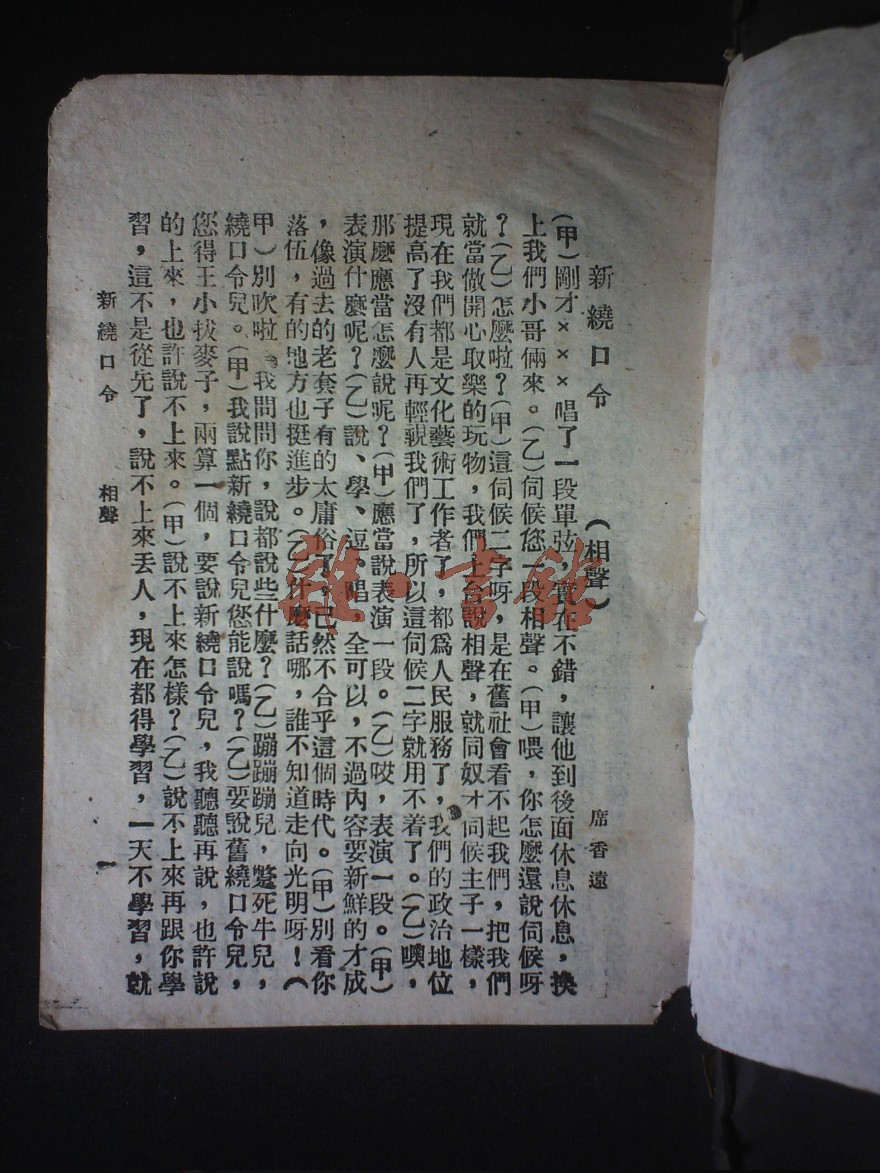 新繞口令　　（相聲）　　席香遠
（甲）剛才×××唱了一段單弦，實在不錯，讓他到後面休息休息，換
上我們小哥倆來。（乙）伺候您一段相聲。（甲）喂，你怎麼還說伺候呀
？（乙）怎麼啦？（甲）這伺候二字呀，是在舊社會看不起我們，把我們
就當做開心取樂的玩物，我們上台說相聲，就同奴才伺候主子一樣，
現在我們都是文化藝術工作者了，都爲人民服務了，我們的政治地位
提高了沒有人再輕視我們了，所以這伺候二字就用不着了。（乙）噢，
那麼應當怎麼說呢？（甲）應當說表演一段。（乙）哎，表演一段。（甲）
表演什麼呢？（乙）說、學、逗、唱，全可以，不過內容要新鮮的才成
，像過去的老套子有的太庸俗了，已然不合乎這個時代。（甲）別看你
落伍，有的地方也挺進步。（乙）什麼話哪，誰不知道走向光明呀！（
甲）別吹啦，我問問你，說都說些什麼？（乙）蹦蹦蹦兒，蹩死牛兒，
繞口令兒。（甲）我說點新繞口令兒您能說嗎？（乙）要說舊繞口令兒，
您得王小拔麥子，兩算一個，要說新繞口令兒，我聽聽再說，也許說
的上來，也許說不上來。（甲）說不上來怎樣？（乙）說不上來再跟你學
習，這不是從先了，說不上來丟人，現在都得學習，一天不學習，就
新繞口令　　相聲　　一
雜·書館